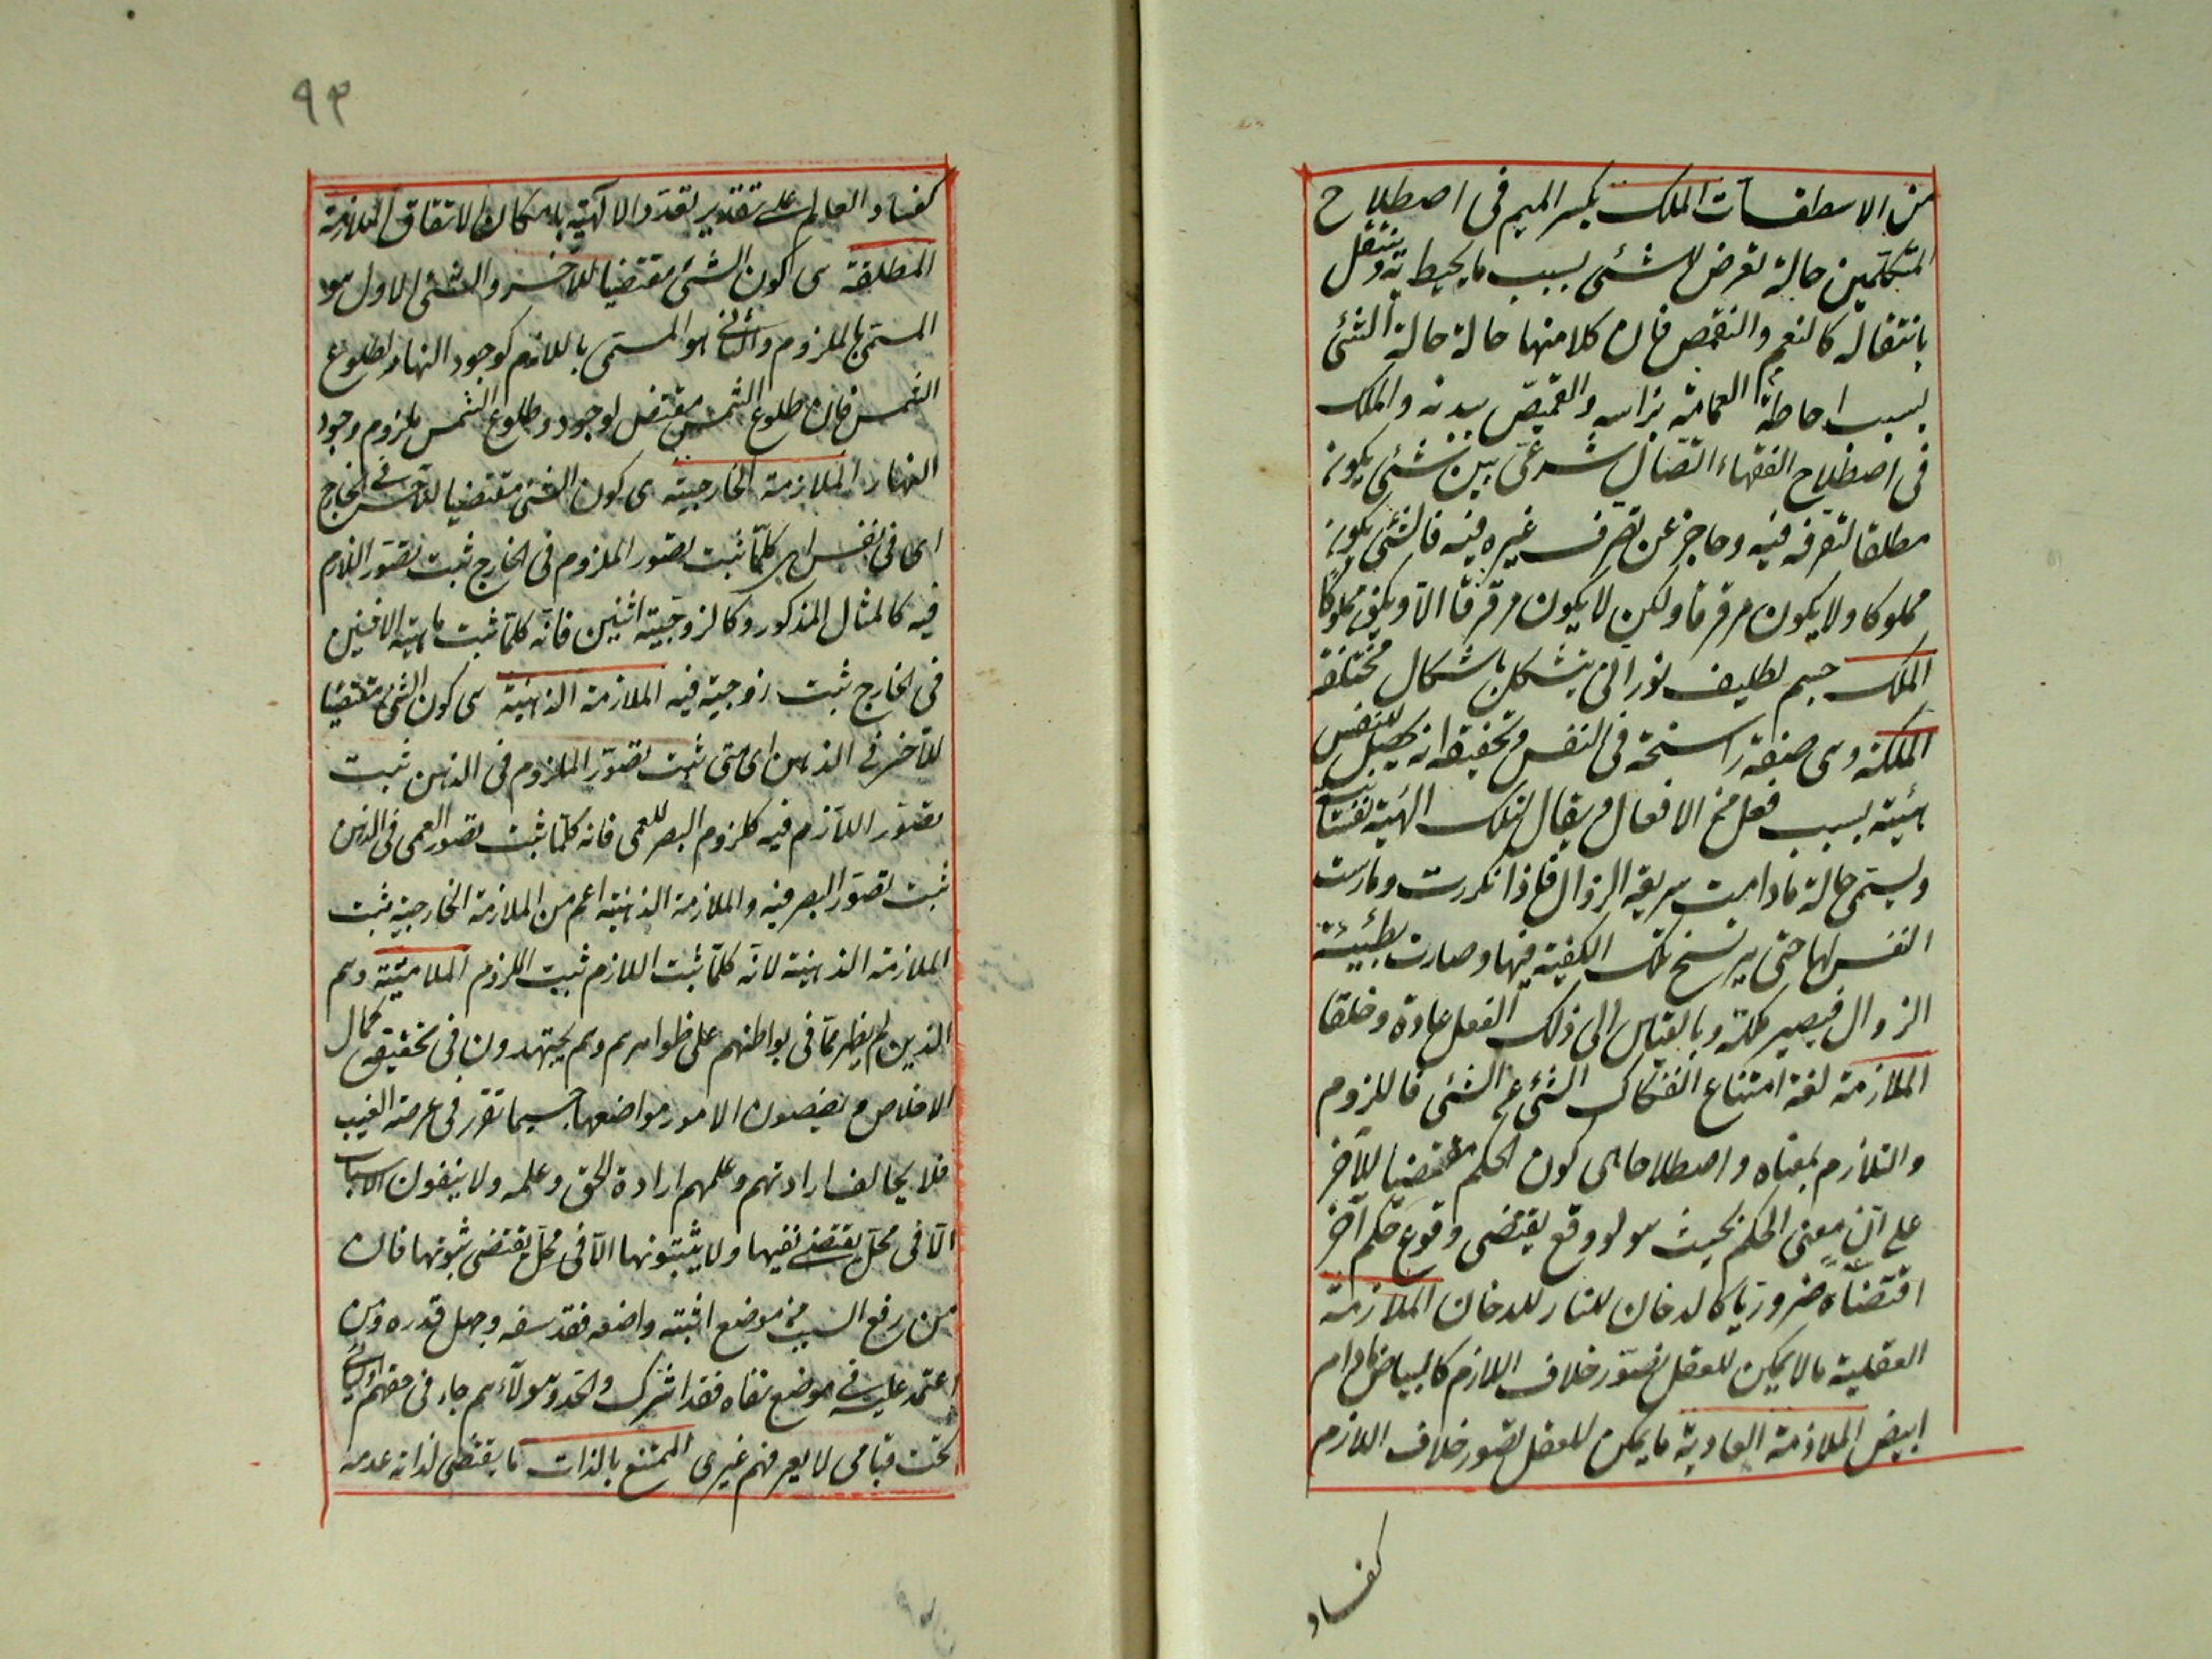 من الاسطقسات الملك بكسر الميم فى اصطلاح
المتكلمين حالة تعرض لشئى بسبب ما يحيط به وينتقل
بانتقاله كالتعمم والتقمص فان كلا منهما حالة حالة الشئى
بسبب احاطة العمامة براسه والقميص ببدنه والملك
فى اصطلاح الفقهاء اتصال شرعى بين شئى يكون
مطلقا لتصرفه فيه وحاجز عن تصرف غيره فيه فالشئى يكون
مملوكا ولا يكون مرقوقا ولكن لا يكون مرقوقا الا ويكون مملوكا
الملك جسم لطيف نورانى يتشكل باشكال مختلفة
الملكة وهى صفة راسخة فى النفس وتحقيقه انه يحصل للنفس
هيئة بسبب فعل من الافعال ويقال لتلك الهيئة نفسانية
ويسمى حالة مادامت سريعة الزوال فاذا تكررت ومارست
النفس لها حتى يرسخ تلك الكيفية فيها وصارت بطيئة
الزوال فيصير ملكة وبالقياس الى ذلك الفعل عادة وخلقا
الملازمة لغة امتناع انفكاك الشئى عن الشئى فاللزوم
والتلازم بمعناه واصطلاحا هى كون الحكم مقتضيا للآخر
على ان معنى الحكم بحيث هو لو وقع يقتضى وقوع حكم آخر
اقتضاءً ضروريا كالدخان للنار للدخان الملازمة
العقلية ما لا يمكن للعقل تصور خلاف اللازم كالبياض مادام
ابيض الملازمة العادية ما يمكن للعقل تصور خلاف اللازم
كفساد
٩٣
كفساد العالم على تقدير تعدد الالهية بامكان الاتفاق الملازمة
المطلقة هى كون الشئى مقتضيا للآخر والشئى الاول هو
المسمى بالملزوم والثانى هو المسمى باللازم كوجود النهار لطلوع
الشمس فان طلوع الشمس مقتض لوجود وطلوع الشمس ملزوم وجود
النهار الملازمة الخارجية هى كون الشئى مقتضيا للآخر فى الخارج
اى فى نفس اى كلما ثبت تصور الملزوم فى الخارج ثبت تصور اللازم
فيه كالمثال المذكور وكالزوجية اثنين فانه كلما ثبت ماهية الاثنين
فى الخارج ثبت زوجية فيه الملازمة الذهنية هى كون الشئى مقتضيا
للآخر فى الذهن اى متى ثبت تصور الملزوم فى الذهن ثبت
تصور اللازم فيه كلزوم البصر للعمى فانه كلما ثبت تصور العمى فى الذهن
ثبت تصور البصر فيه والملازمة الذهنية اعم من الملازمة الخارجية ثبت
الملازمة الذهنية لانه كلما ثبت اللازم ثبت اللزوم الملامتية وهم
الذين لم يظهر مما فى بواطنهم على ظواهرهم وهم يجتهدون فى تحقيق كمال
الاخلاص ويضعون الامور مواضعها حسبما تقرر فى عرصة الغيب
فلا يخالف ارادتهم وعلمهم ارادة الحق وعلمه ولا ينفون الاسباب
الا فى محل يقتضى نفيها ولا يثبتونها الا فى محل يقتضى ثبوتها فان
من رفع السبب من موضع اثبته واضعه فقد سفه وجهل قدره ومن
اعتمد عليه فى موضع نفاه فقد اشرك والحد وهؤلاء هم جاء فى حقهم اوليائى
تحت قبابى لا يعرفهم غيرى الممتنع بالذات ما يقتضى لذاته عدمه